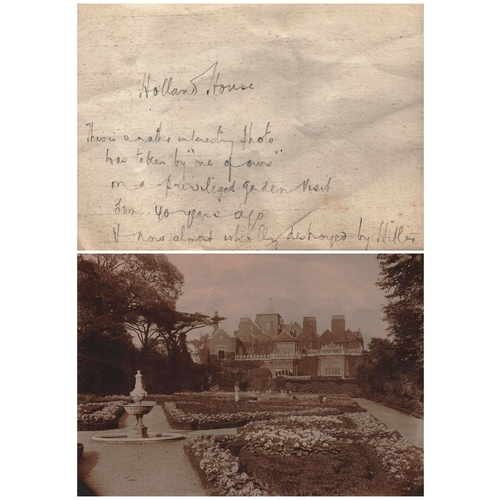 Holland House
This is a rather interesting photo
was taken by "me of ours"
on a privileged garden visit
some 40 years ago
& now almost wholly destroyed by Hitler